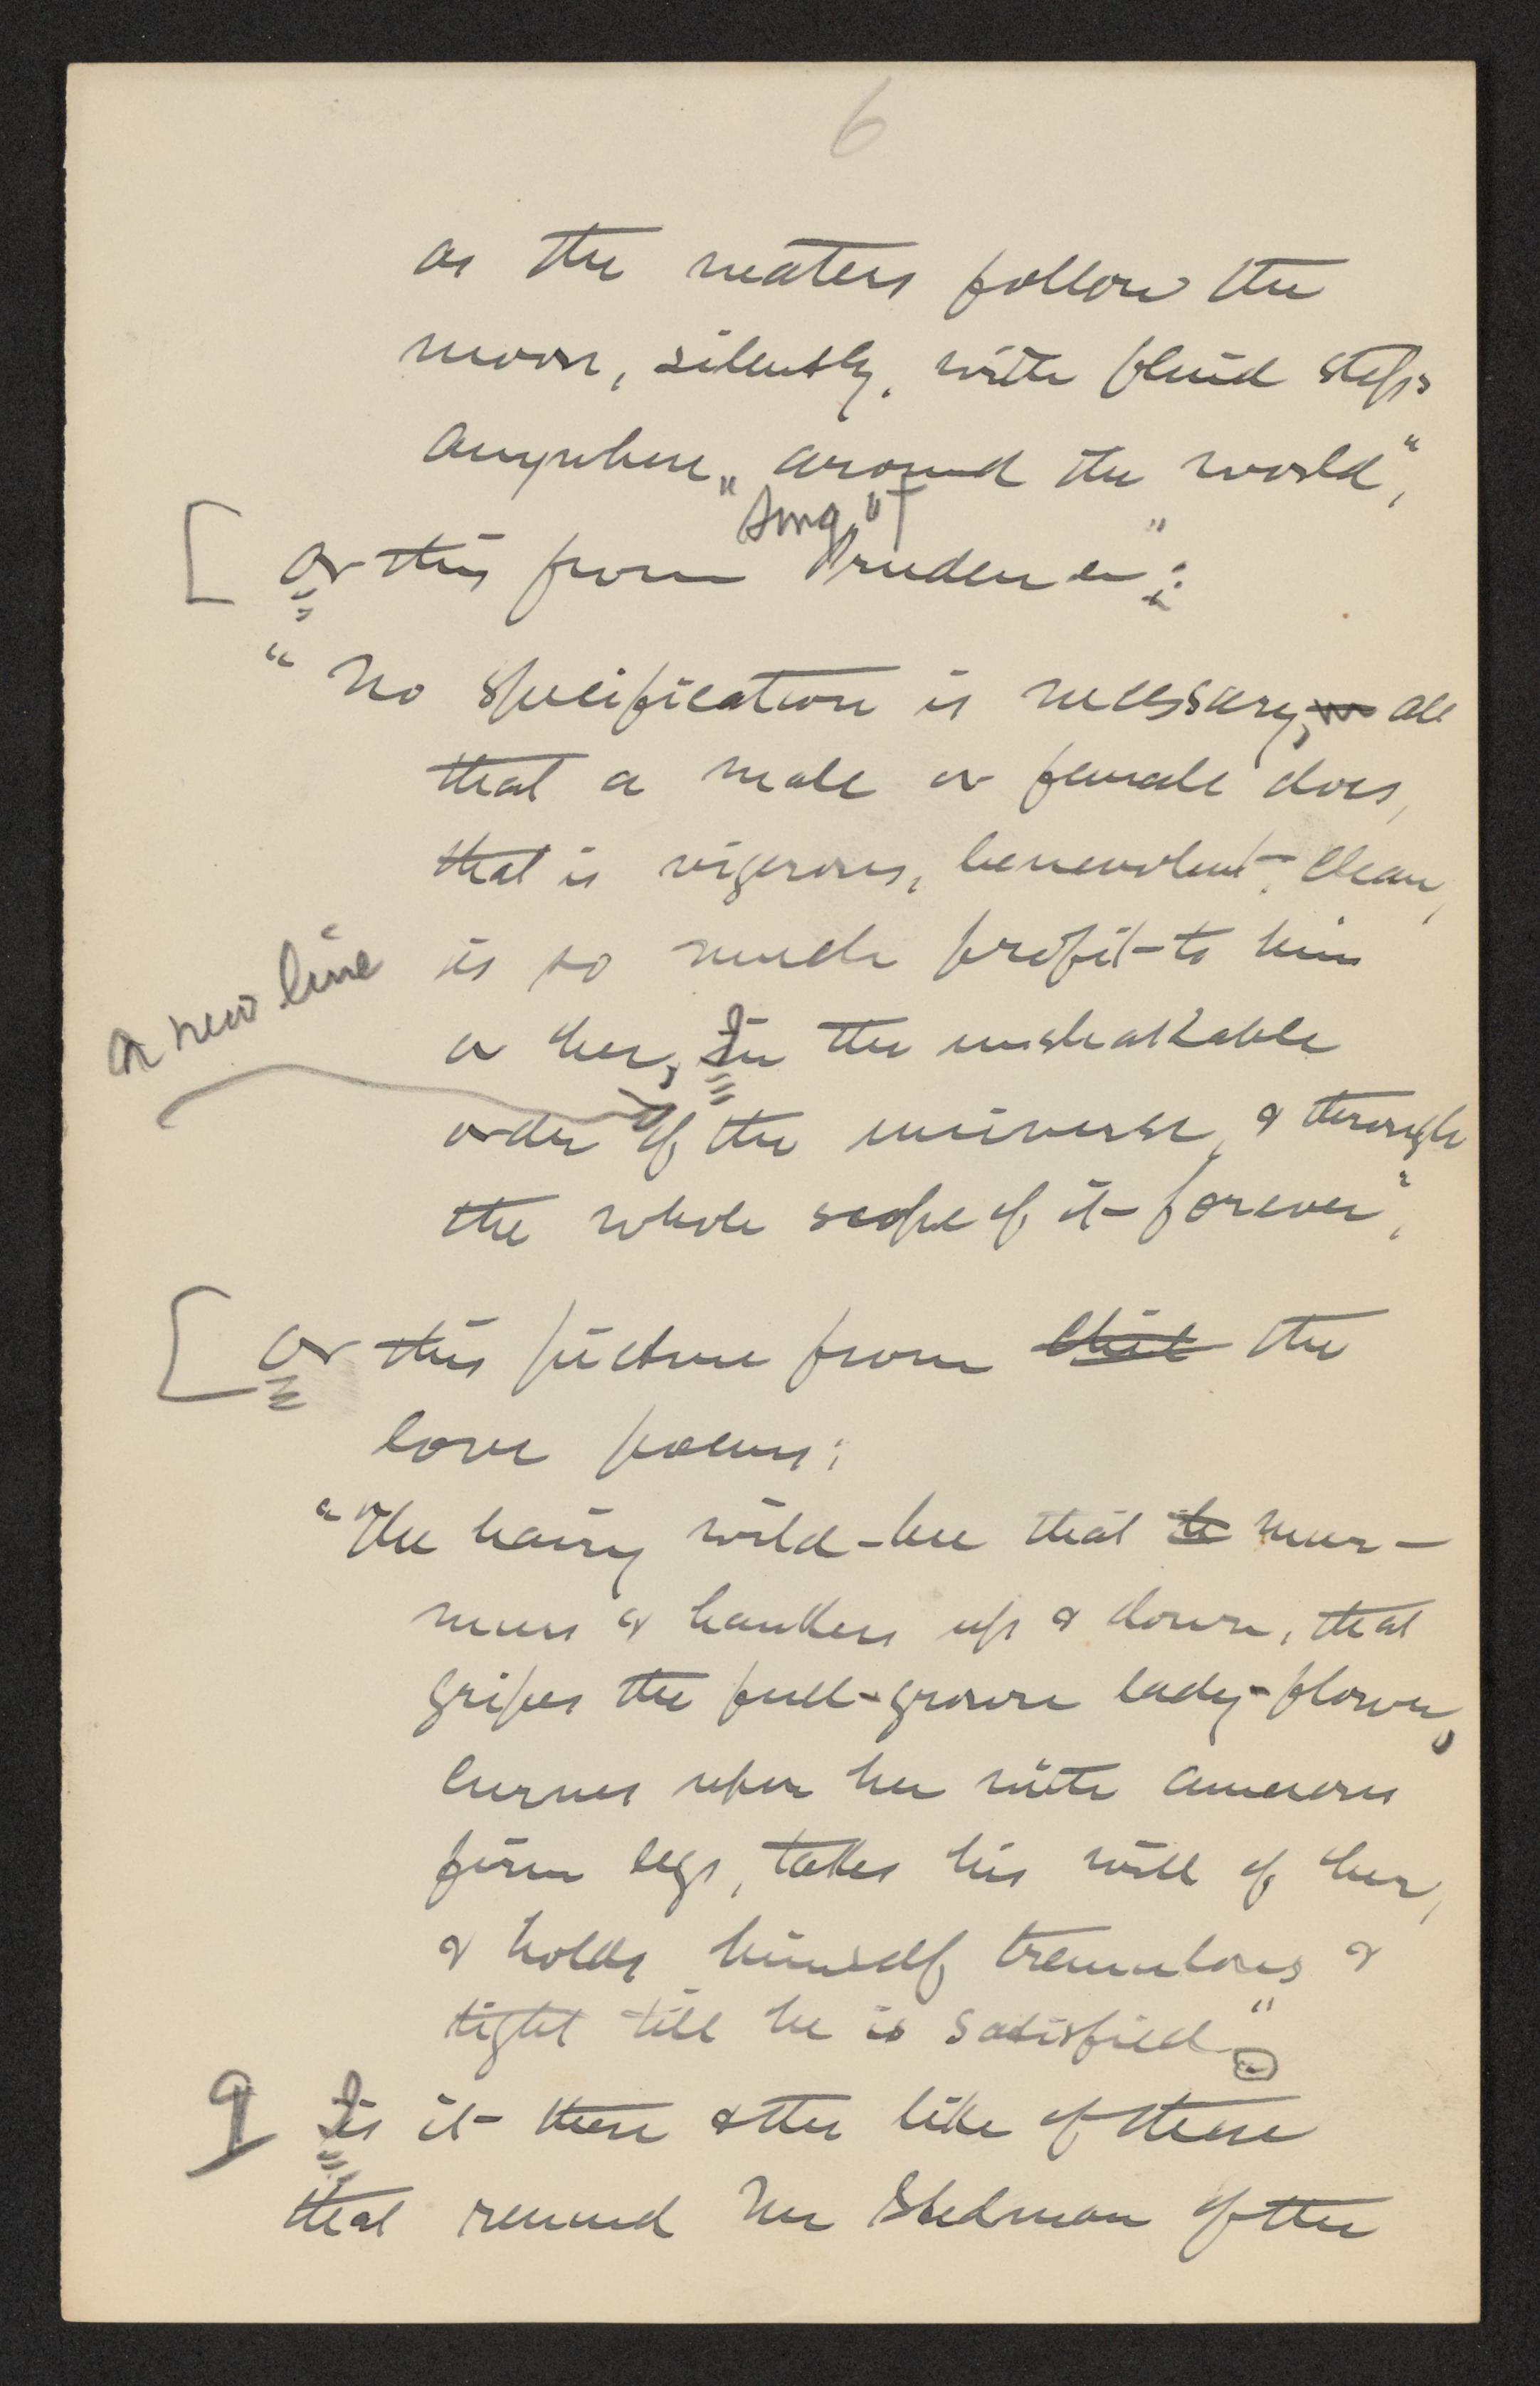 6
as the waters follow the
moon, silently, with fluid steps
anywhere around the world",
"Song of
[ or this from Prudence":
"No specification is necessary, all
that a male or female does,
that is vigorous, benevolent, clean,
is so much profit to him
a new line
or her, In the unshakable
order of the universe, & through
the whole scope of it forever",
[ or this picture from the
love poems:
"The hairy wild-bee that mur-
murs & hankers up & down, that
gripes the full-grown lady-flower,
curves upon her with amorous
firm legs, takes his will of her,
& holds himself tremulous &
tight till he is satisfied."
¶ Is it these & the like of these
that remind Mr Stedman of the